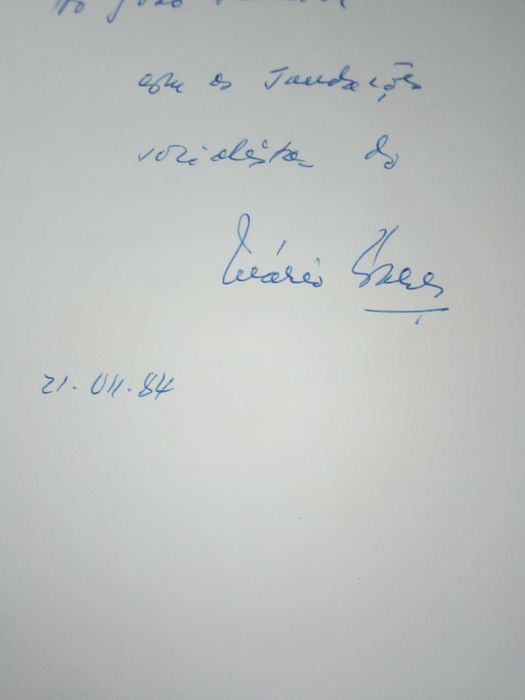 Ao João
com as saudações
socialistas do
Mário Soares
21.VII.84